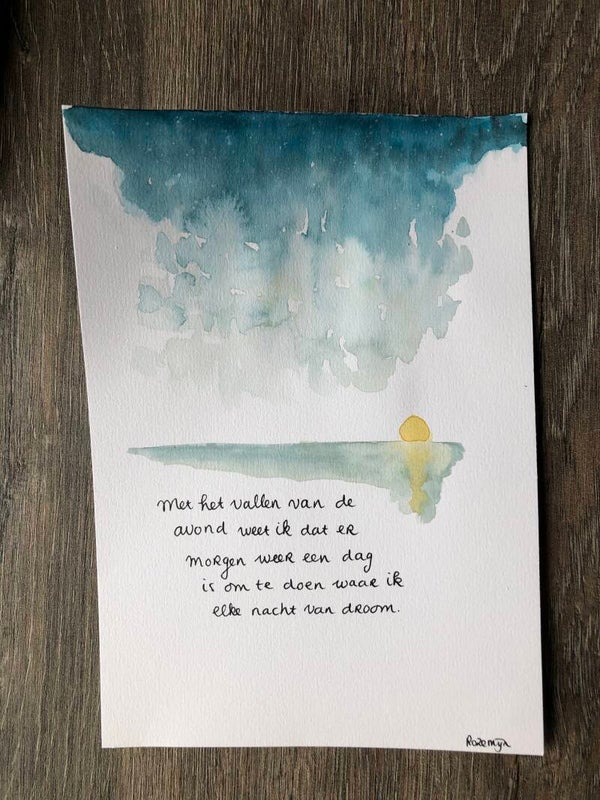 Met het vallen van de
avond weet ik dat er
morgen weer een dag
is om te doen waar ik
elke nacht van droom.
Rozemijn